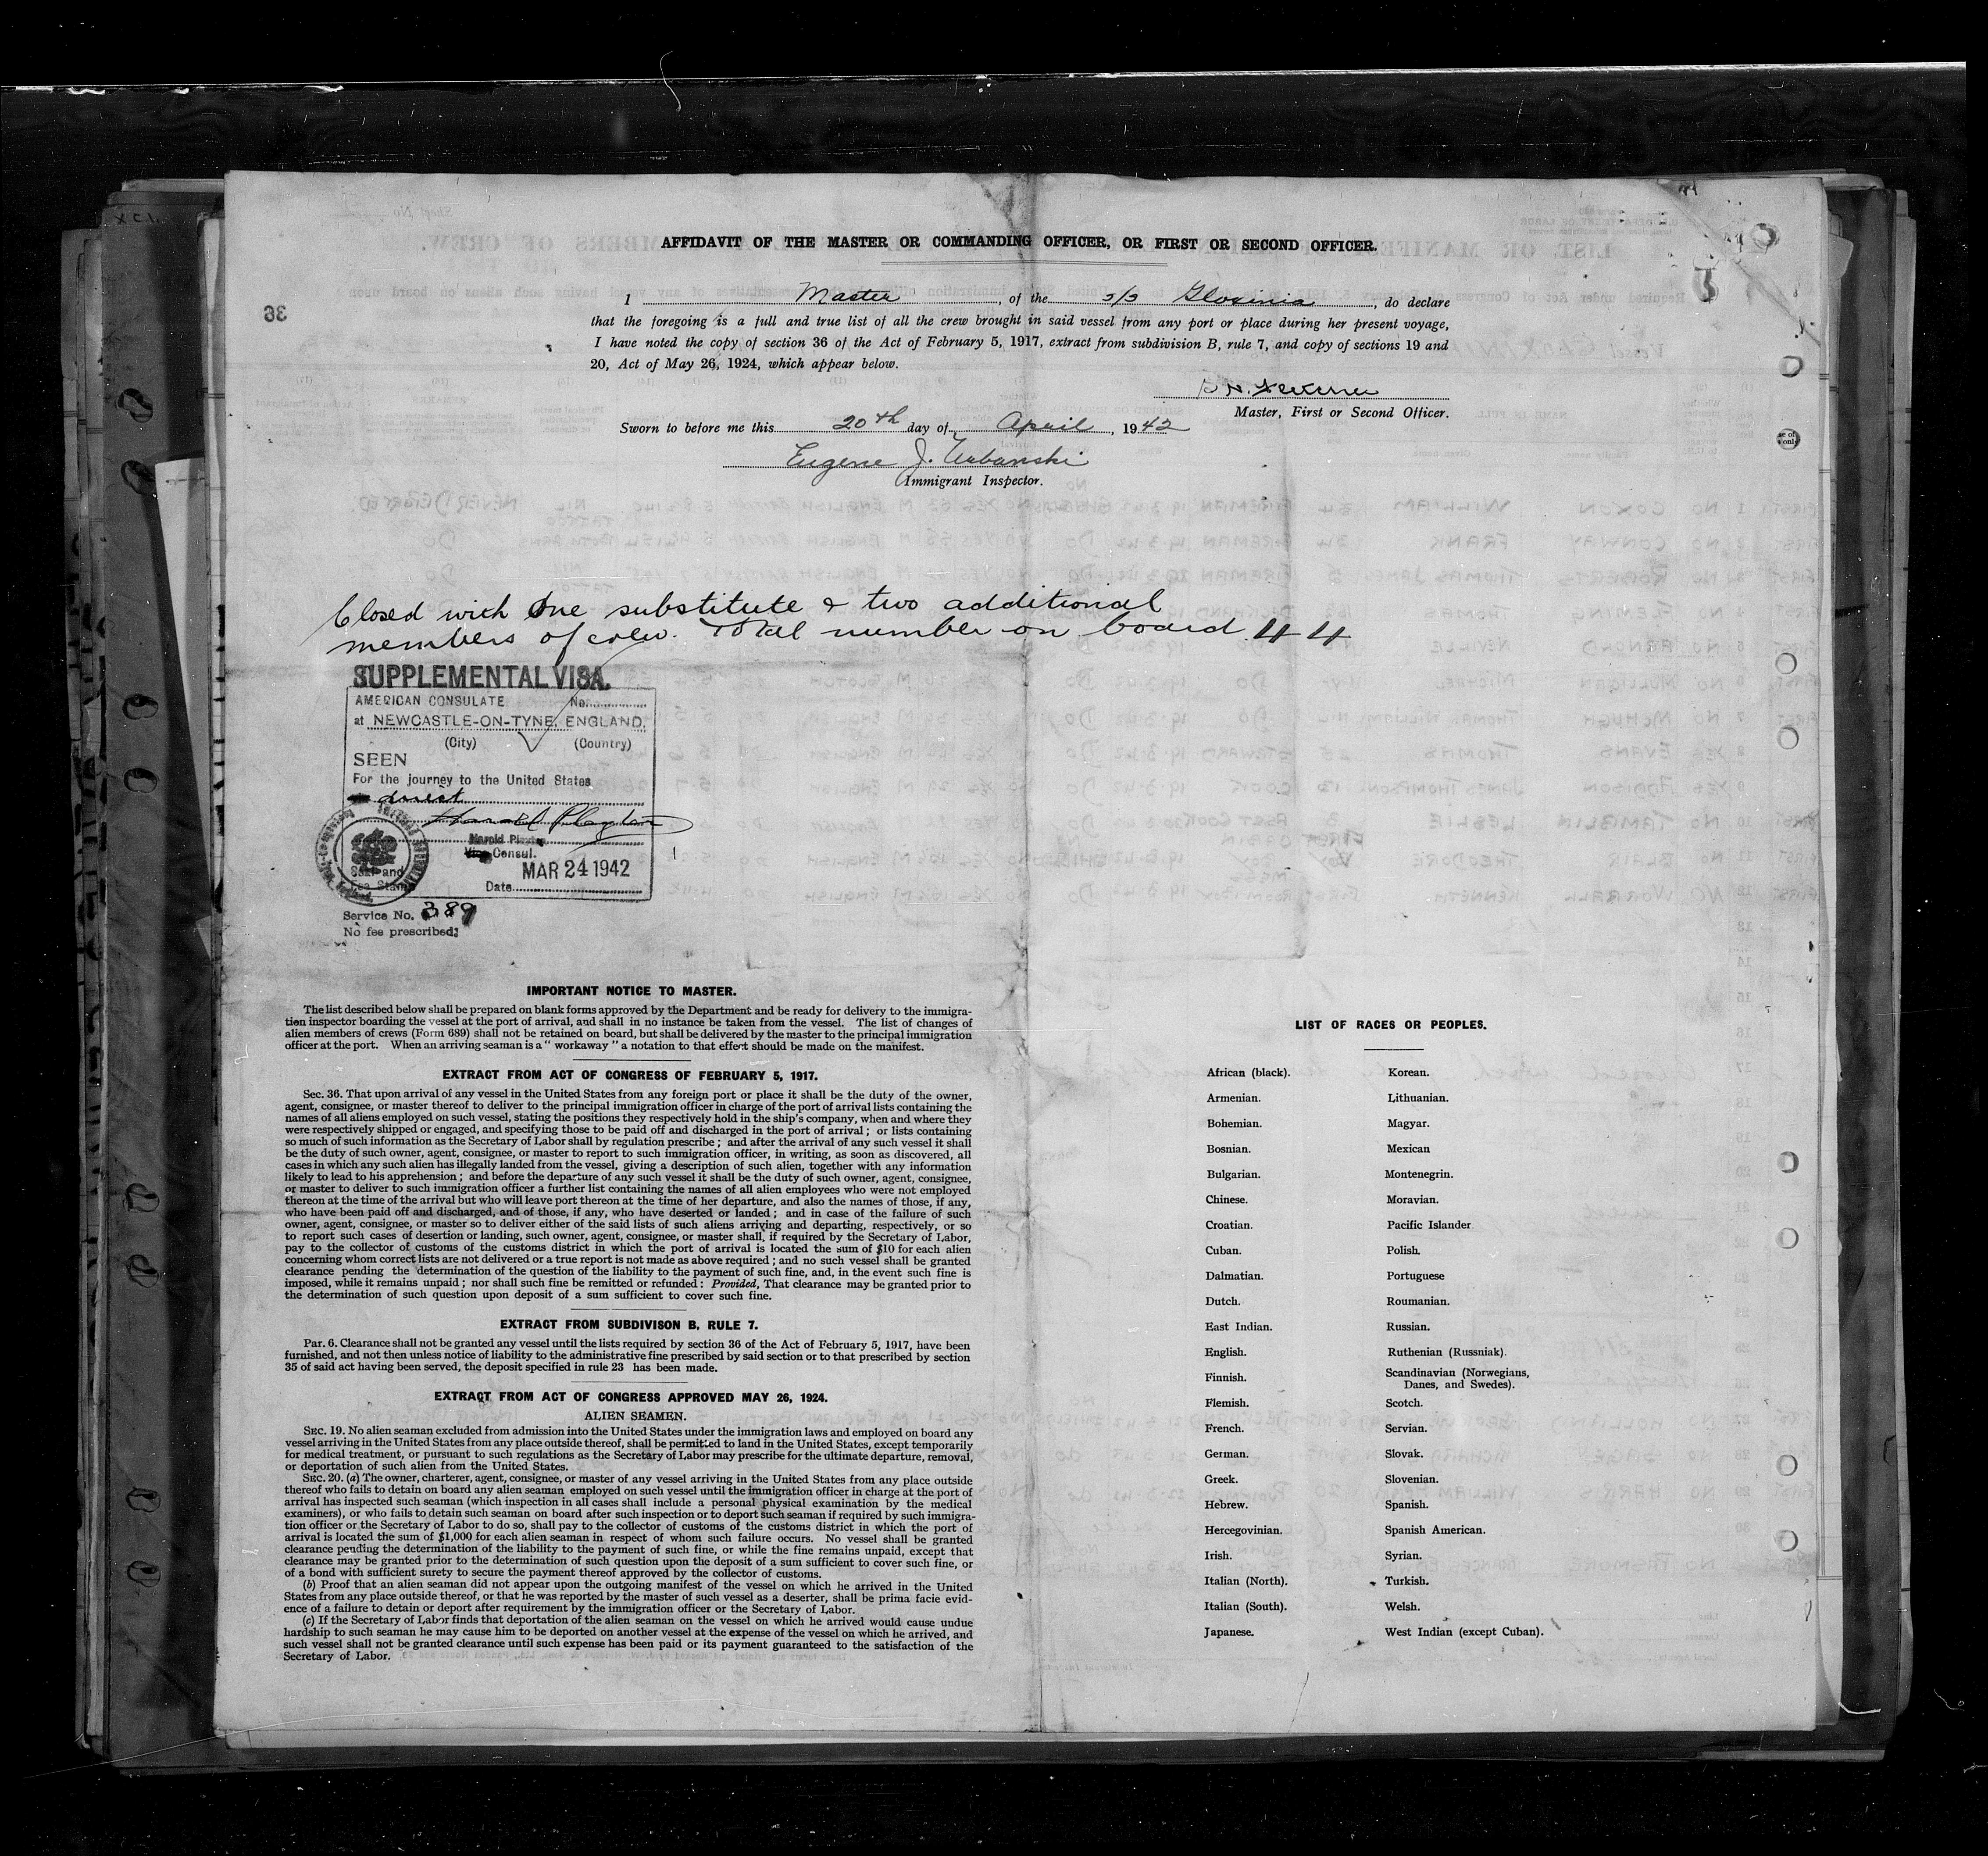 AFFIDAVIT OF THE MASTER OR COMMANDING OFFICER, OR FIRST OR SECOND OFFICER.
I Master, of the S/S Gloxinia, do declare
that the foregoing is a full and true list of all the crew brought in said vessel from any port or place during her present voyage,
I have noted the copy of section 36 of the Act of February 5, 1917, extract from subdivision B, rule 7, and copy of sections 19 and
20, Act of May 26, 1924, which appear below.
Master, First or Second Officer.
Sworn to before me this 20th day of April, 1942
Eugene J. Urbanski
Immigrant Inspector.
Closed with One substitute & two additional
members of crew. Total number on board 44
SUPPLEMENTAL VISA.
AMERICAN CONSULATE No.
at NEWCASTLE-ON-TYNE, ENGLAND.
(City) (Country)
SEEN
For the journey to the United States
direct
Harold Playter
Harold Playter
Vice Consul.
MAR 24 1942
Seal and
Fee Stamp
Date
Service No. 389
No fee prescribed.
IMPORTANT NOTICE TO MASTER.
The list described below shall be prepared on blank forms approved by the Department and be ready for delivery to the immigra-
tion inspector boarding the vessel at the port of arrival, and shall in no instance be taken from the vessel. The list of changes of
alien members of crews (Form 689) shall not be retained on board, but shall be delivered by the master to the principal immigration
officer at the port. When an arriving seaman is a " workaway " a notation to that effect should be made on the manifest.
EXTRACT FROM ACT OF CONGRESS OF FEBRUARY 5, 1917.
Sec. 36. That upon arrival of any vessel in the United States from any foreign port or place it shall be the duty of the owner,
agent, consignee, or master thereof to deliver to the principal immigration officer in charge of the port of arrival lists containing the
names of all aliens employed on such vessel, stating the positions they respectively hold in the ship's company, when and where they
were respectively shipped or engaged, and specifying those to be paid off and discharged in the port of arrival ; or lists containing
so much of such information as the Secretary of Labor shall by regulation prescribe ; and after the arrival of any such vessel it shall
be the duty of such owner, agent, consignee, or master to report to such immigration officer, in writing, as soon as discovered, all
cases in which any such alien has illegally landed from the vessel, giving a description of such alien, together with any information
likely to lead to his apprehension ; and before the departure of any such vessel it shall be the duty of such owner, agent, consignee,
or master to deliver to such immigration officer a further list containing the names of all alien employees who were not employed
thereon at the time of the arrival but who will leave port thereon at the time of her departure, and also the names of those, if any,
who have been paid off and discharged, and of those, if any, who have deserted or landed ; and in case of the failure of such
owner, agent, consignee, or master so to deliver either of the said lists of such aliens arriving and departing, respectively, or so
to report such cases of desertion or landing, such owner, agent, consignee, or master shall, if required by the Secretary of Labor,
pay to the collector of customs of the customs district in which the port of arrival is located the sum of $10 for each alien
concerning whom correct lists are not delivered or a true report is not made as above required ; and no such vessel shall be granted
clearance pending the determination of the question of the liability to the payment of such fine, and, in the event such fine is
imposed, while it remains unpaid ; nor shall such fine be remitted or refunded : Provided, That clearance may be granted prior to
the determination of such question upon deposit of a sum sufficient to cover such fine.
EXTRACT FROM SUBDIVISON B, RULE 7.
Par. 6. Clearance shall not be granted any vessel until the lists required by section 36 of the Act of February 5, 1917, have been
furnished, and not then unless notice of liability to the administrative fine prescribed by said section or to that prescribed by section
35 of said act having been served, the deposit specified in rule 23 has been made.
EXTRACT FROM ACT OF CONGRESS APPROVED MAY 26, 1924.
ALIEN SEAMEN.
SEC. 19. No alien seaman excluded from admission into the United States under the immigration laws and employed on board any
vessel arriving in the United States from any place outside thereof, shall be permitted to land in the United States, except temporarily
for medical treatment, or pursuant to such regulations as the Secretary of Labor may prescribe for the ultimate departure, removal,
or deportation of such alien from the United States.
SEC. 20. (a) The owner, charterer, agent, consignee, or master of any vessel arriving in the United States from any place outside
thereof who fails to detain on board any alien seaman employed on such vessel until the immigration officer in charge at the port of
arrival has inspected such seaman (which inspection in all cases shall include a personal physical examination by the medical
examiners), or who fails to detain such seaman on board after such inspection or to deport such seaman if required by such immigra-
tion officer or the Secretary of Labor to do so, shall pay to the collector of customs of the customs district in which the port of
arrival is located the sum of $1,000 for each alien seaman in respect of whom such failure occurs. No vessel shall be granted
clearance pending the determination of the liability to the payment of such fine, or while the fine remains unpaid, except that
clearance may be granted prior to the determination of such question upon the deposit of a sum sufficient to cover such fine, or
of a bond with sufficient surety to secure the payment thereof approved by the collector of customs.
(b) Proof that an alien seaman did not appear upon the outgoing manifest of the vessel on which he arrived in the United
States from any place outside thereof, or that he was reported by the master of such vessel as a deserter, shall be prima facie evid-
ence of a failure to detain or deport after requirement by the immigration officer or the Secretary of Labor.
(c) If the Secretary of Labor finds that deportation of the alien seaman on the vessel on which he arrived would cause undue
hardship to such seaman he may cause him to be deported on another vessel at the expense of the vessel on which he arrived, and
such vessel shall not be granted clearance until such expense has been paid or its payment guaranteed to the satisfaction of the
Secretary of Labor.
LIST OF RACES OR PEOPLES.
African (black).
Armenian.
Bohemian.
Bosnian.
Bulgarian.
Chinese.
Croatian.
Cuban.
Dalmatian.
Dutch.
East Indian.
English.
Finnish.
Flemish.
French.
German.
Greek.
Hebrew.
Hercegovinian.
Irish.
Italian (North).
Italian (South).
Japanese.
Korean.
Lithuanian.
Magyar.
Mexican
Montenegrin.
Moravian.
Pacific Islander
Polish.
Portuguese
Roumanian.
Russian.
Ruthenian (Russniak).
Scandinavian (Norwegians,
Danes, and Swedes).
Scotch.
Servian.
Slovak.
Slovenian.
Spanish.
Spanish American.
Syrian.
Turkish.
Welsh.
West Indian (except Cuban).